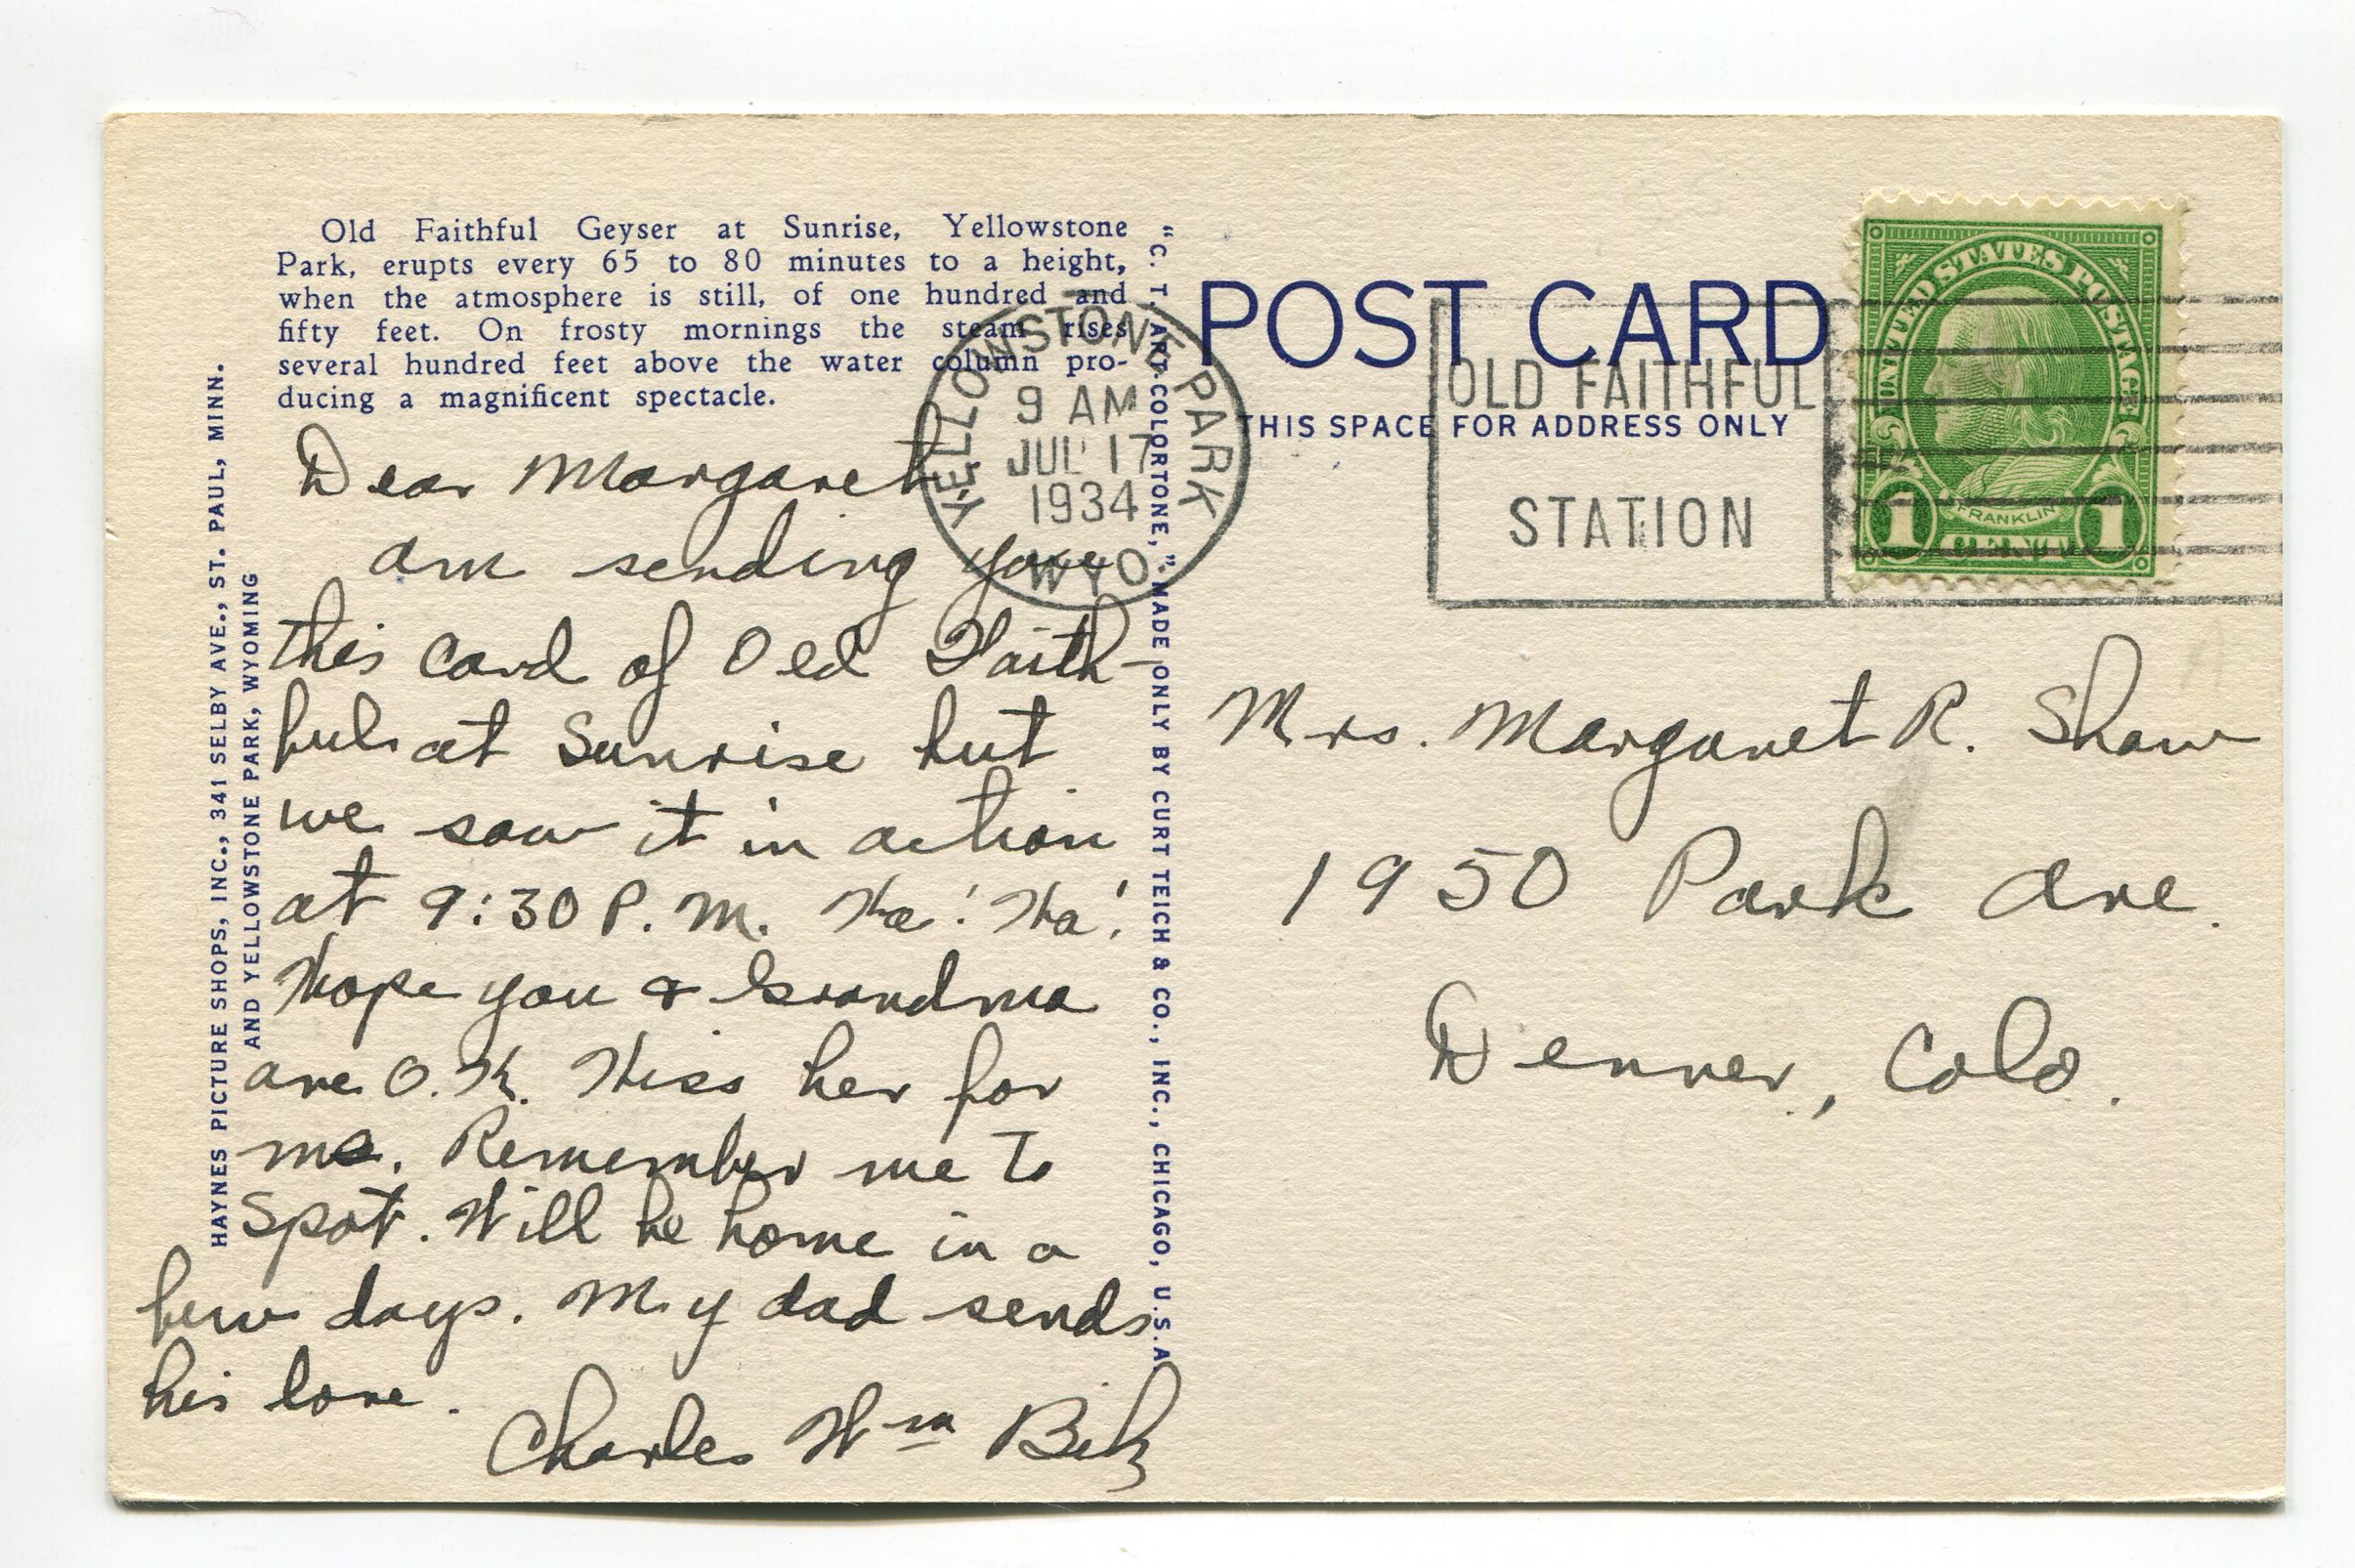 Old Faithful Geyser at Sunrise, Yellowstone
Park, erupts every 65 to 80 minutes to a height,
when the atmosphere is still, of one hundred and
fifty feet. On frosty mornings the steam rises
several hundred feet above the water column pro-
ducing a magnificent spectacle.
HAYNES PICTURE SHOPS, INC., 341 SELBY AVE., ST. PAUL, MINN.
AND YELLOWSTONE PARK, WYOMING
Dear Margaret
am sending you
this card of Old Faith-
ful at Sunrise but
we saw it in action
at 9:30 P.M. Ha! Ha!
Hope you & Grandma
are O.K. Kiss her for
me. Remember me to
Spot. Will be home in a
few days. My dad sends
his love.
Charles Wm
"C. T. ART-COLORTONE," MADE ONLY BY CURT TEICH & CO., INC., CHICAGO, U.S.A.
YELLOWSTONE PARK
9 AM
JUL 17
1934
WYO
POST CARD
THIS SPACE FOR ADDRESS ONLY
OLD FAITHFUL
STATION
UNITED STATES POSTAGE
FRANKLIN
1 CENT 1
Mrs. Margaret R. Shaw
1950 Park Ave.
Denver, Colo.